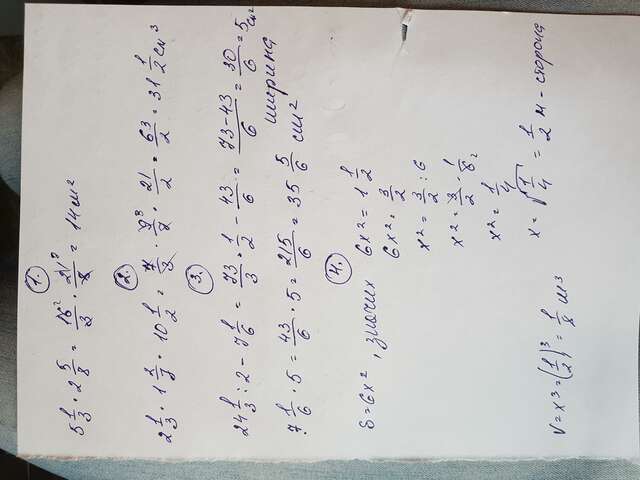 1.
5 1/3 · 2 5/8 = 16²/3 · 21⁷/8 = 14 см²
2.
2 1/3 · 1 2/7 · 10 1/2 = 7/3 · 9³/7 · 21/2 = 63/2 = 31 1/2 см³
3.
24 1/3 : 2 - 7 1/6 = 73/3 · 1/2 - 43/6 = (73-43)/6 = 30/6 = 5 см
ширина
7 1/6 · 5 = 43/6 · 5 = 215/6 = 35 5/6 см²
4.
S=6x², значит 6x² = 1 1/2
6x² = 3/2
x² = 3/2 : 6
x² = 3/2 · 1/6₂
x² = 1/4
x = √(1/4) = 1/2 м - сторона
V = x³ = (1/2)³ = 1/8 м³